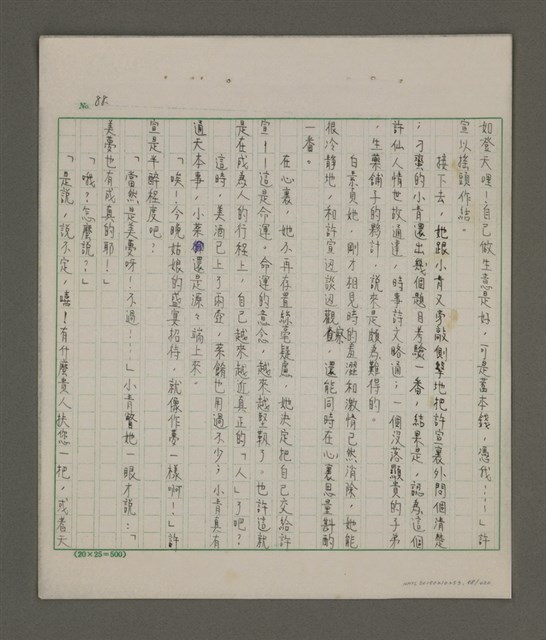 No. 88.
如登天哩！自己做生意是好，可是蓄本錢，憑我……」許
宣以搖頭作結。
接下去，她跟小青又旁敲側擊地把許宣裏外問個清楚
；刁蠻的小青還出幾個題目考驗一番，結果是，認為這個
許仙人情世故通達，時事詩文略通；一個沒落顯貴的子弟
，生藥鋪子的夥計，說來是頗為難得的。
白素貞她，剛才相見時的羞澀和激情已然消除，她能
很冷靜地，和許宣邊談邊觀察，還能同時在心裏思量斟酌
一番。
在心裏，她不再存置絲毫疑慮，她決定把自己交給許
宣——這是命運，命運的意念，越來越堅執了。也許這就
是在成為人的行程上，自己越來越近真正的「人」了吧？
這時，美酒已上了兩壺，菜餚也用過不少；小青真有
通天本事，小菜還是源々端上來。
「唉！今晚姑娘的盛宴招待，就像作夢一樣啊！」許
宣是半醉程度吧？
「當然是美夢呀！不過……」小青瞥她一眼才說：「
美夢也有成真的耶！」
「哦？怎麼說？」
「是說，說不定，嘻！有什麼貴人扶您一把，或者天
(20×25=500)